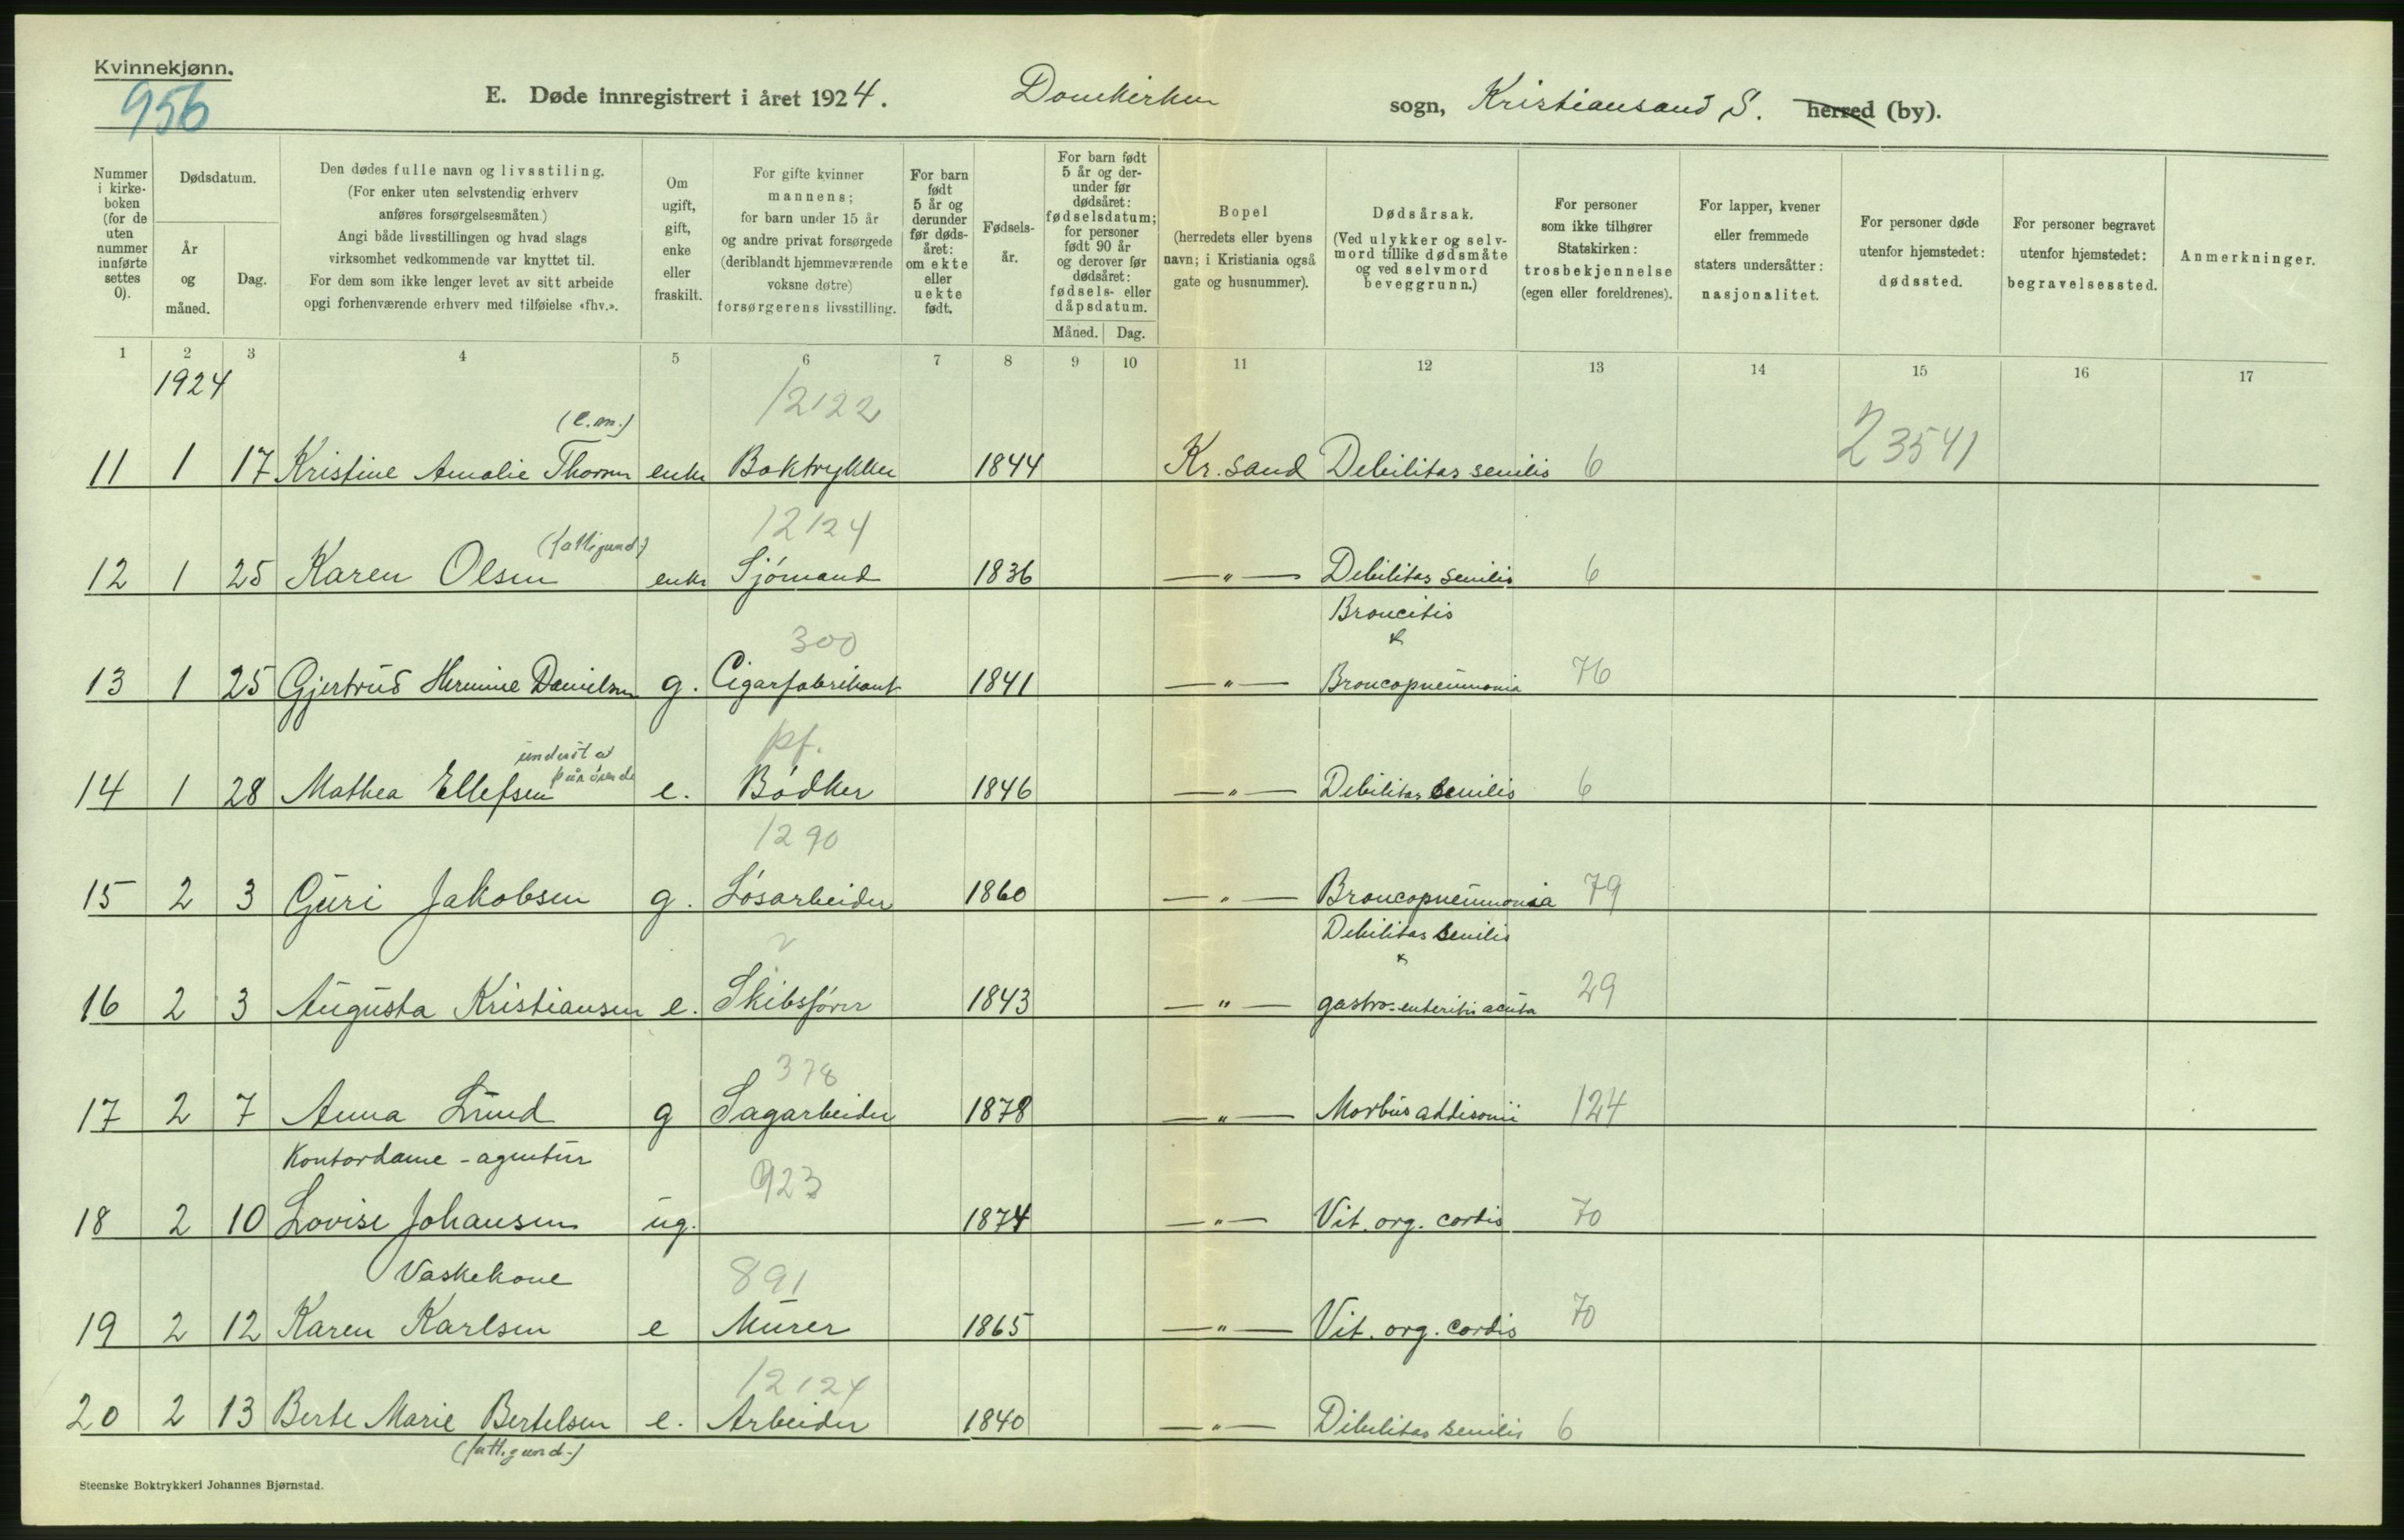 Kvinnekjønn.
956
E. Døde innregistrert i året 1924. Domkirken sogn, Kristiansand S. herred (by).
Nummer i kirke-boken (for de uten nummer innførte settes 0).
Dødsdatum.
År og måned.
Dag.
Den dødes fulle navn og livsstiling.
(For enker uten selvstendig erhverv
anføres forsørgelsesmåten.)
Angi både livsstillingen og hvad slags
virksomhet vedkommende var knyttet til.
For dem som ikke lenger levet av sitt arbeide
opgi forhenværende erhverv med tilføielse «fhv.».
Om ugift, gift, enke eller fraskilt.
For gifte kvinner
mannens;
for barn under 15 år
og andre privat forsørgede
(deriblandt hjemmeværende
voksne døtre)
forsørgerens livsstilling.
For barn født 5 år og derunder før døds-året: om ekte eller uekte født.
Fødsels-år.
For barn født
5 år og der-
under før
dødsåret:
fødselsdatum;
for personer
født 90 år
og derover før
dødsåret:
fødsels- eller
dåpsdatum.
Måned. Dag.
Bopel
(herredets eller byens
navn; i Kristiania også
gate og husnummer).
Dødsårsak.
(Ved ulykker og selv-
mord tillike dødsmåte
og ved selvmord
beveggrunn.)
For personer
som ikke tilhører
Statskirken:
trosbekjennelse
(egen eller foreldrenes).
For lapper, kvener
eller fremmede
staters undersåtter:
nasjonalitet.
For personer døde
utenfor hjemstedet:
dødssted.
For personer begravet
utenfor hjemstedet:
begravelsessted.
Anmerkninger.
1 2 3 4 5 6 7 8 9 10 11 12 13 14 15 16 17
1924
(e.m.) 12122
11 1 17 Kristine Amalie Thorsen enke Boktrykker 1844 Kr. sand Debilitas senilis 6 23541
(fattigund.) 12124
12 1 25 Karen Olsen enke Sjómand 1836 —"— Debilitas senilis 6
300 Broncitis
&
13 1 25 Gjertrud Hermine Danielsen g. Cigarfabrikant 1841 —"— Broncopneumonia 76
underst. av
pårørende pf.
14 1 28 Mathea Ellefsen e. Bódker 1846 —"— Debilitas senilis 6
1290
15 2 3 Guri Jakobsen g. Lósarbeider 1860 —"— Broncopneumonia 79
Debilitas senilis
&
16 2 3 Augusta Kristiansen e. Skibsfórer 1843 —"— gastro-enteritis acuta 29
378
17 2 7 Anna Lund g Sagarbeider 1878 —"— Morbus addisonii 124
Kontordame - agentur 923
18 2 10 Lovise Johansen ug. 1874 —"— Vit. org. cordis 70
Vaskekone 891
19 2 12 Karen Karlsen e Murer 1865 —"— Vit. org. cordis 70
12124
20 2 13 Berte Marie Bertelsen e. Arbeider 1840 —"— Dibilitas senilis 6
(fattigund.)
Steenske Boktrykkeri Johannes Bjørnstad.